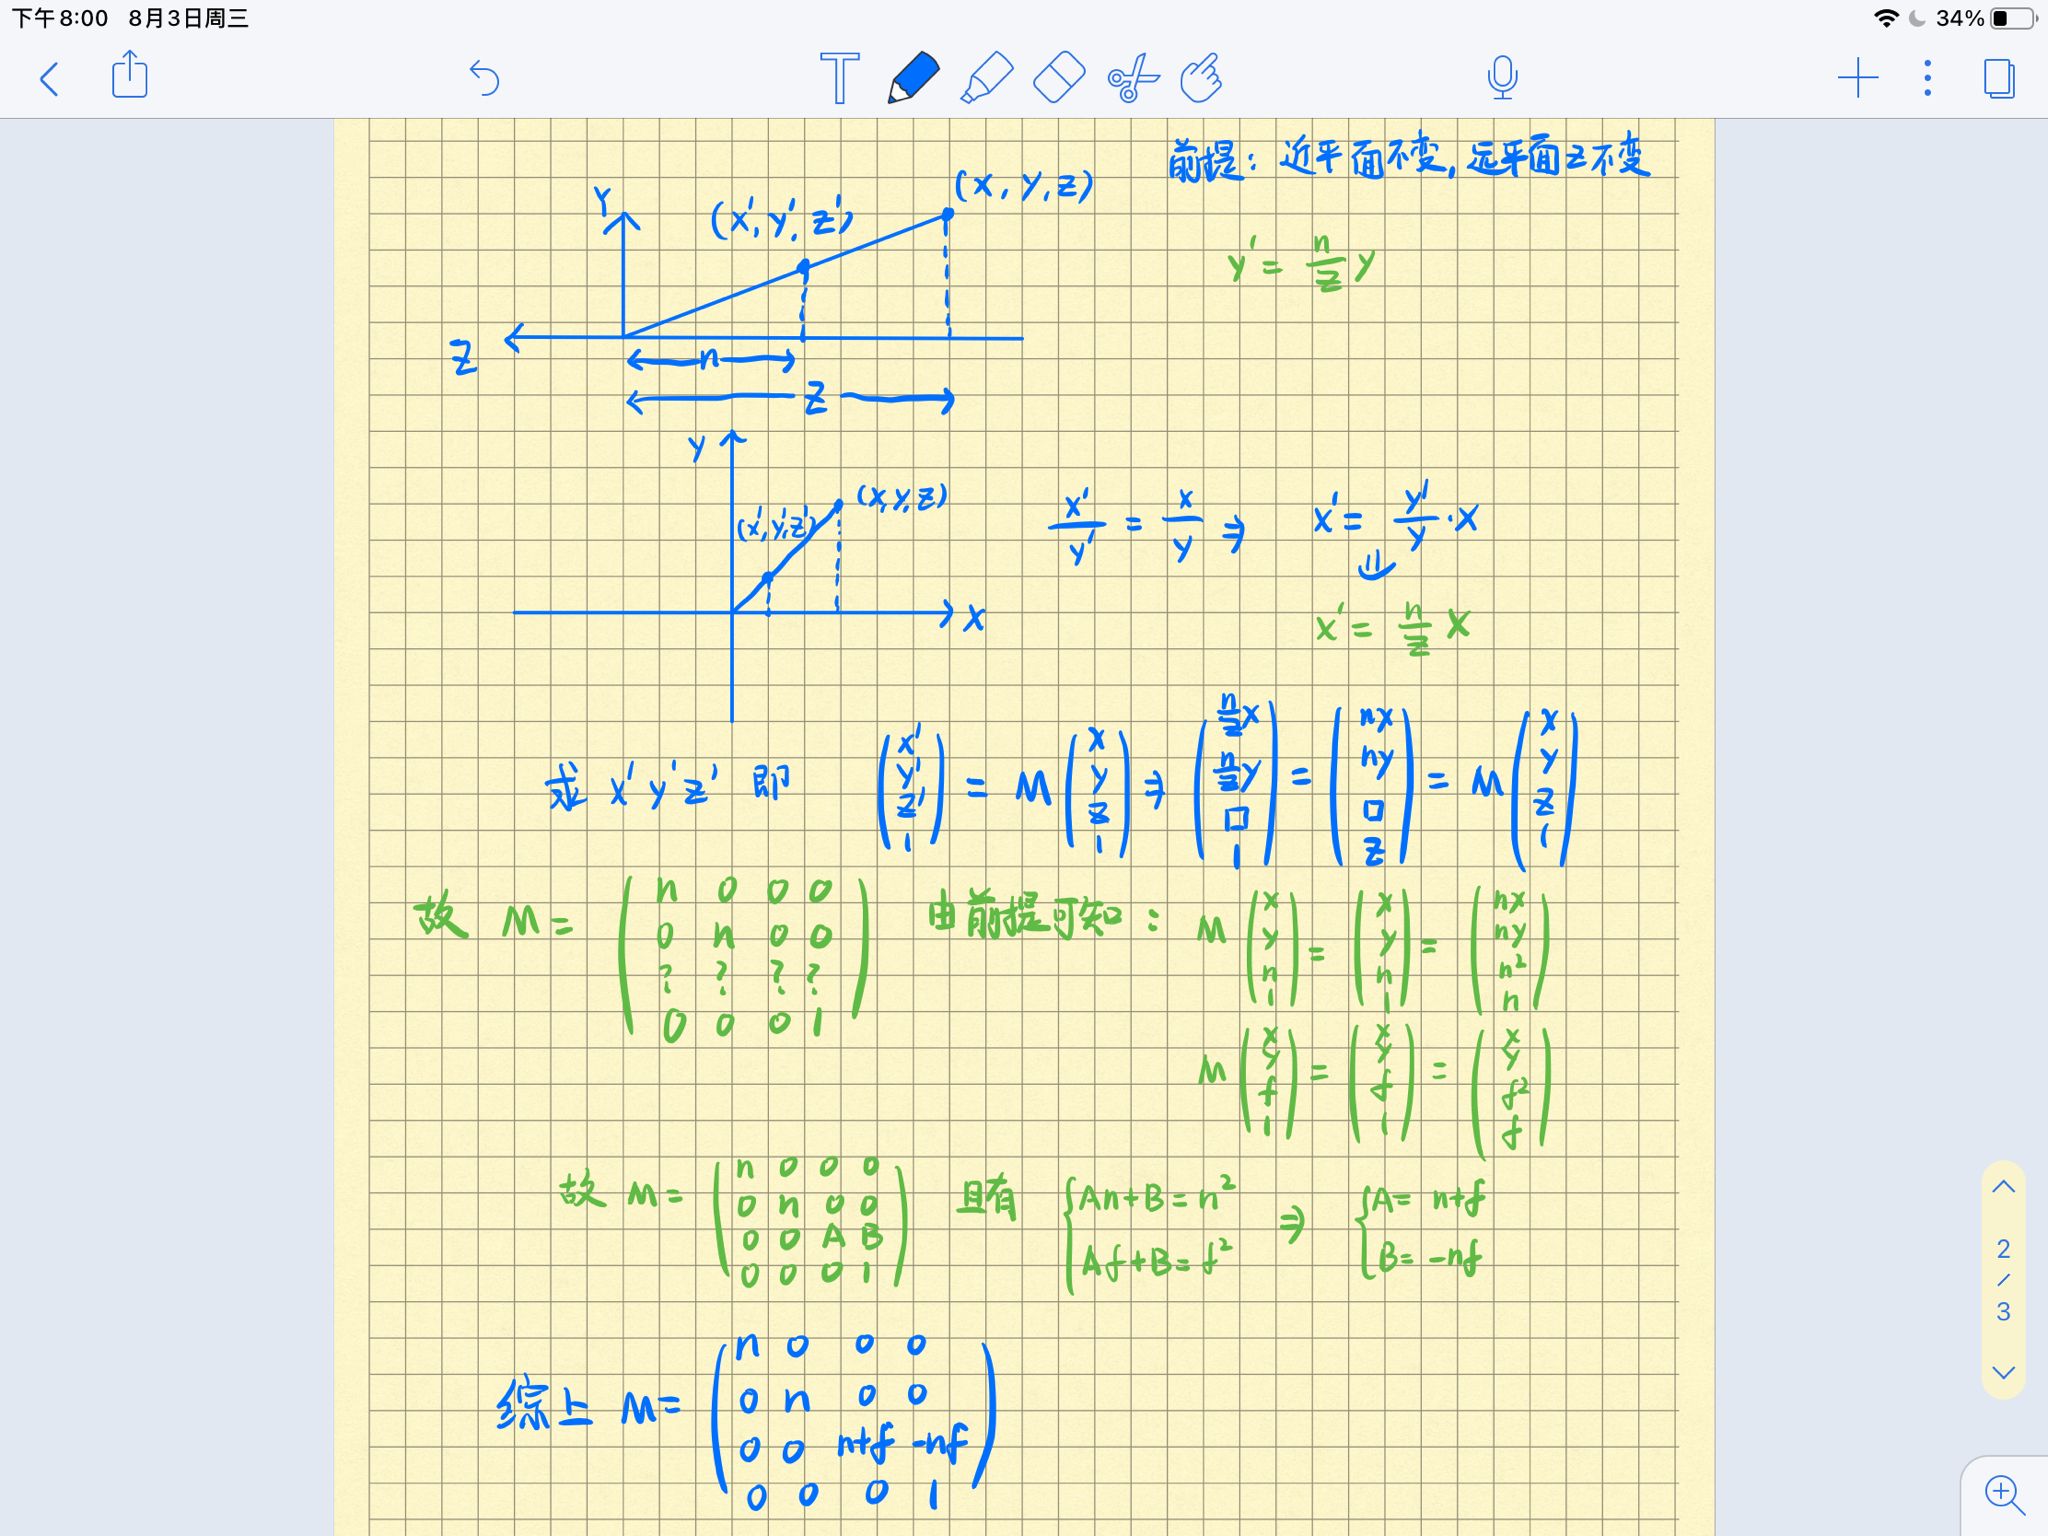 下午8:00 8月3日周三
34%
T
前提：近平面不变，远平面z不变
Y
(x', y', z')
(x, y, z)
y' = n/z y
Z
n
z
Y
(x', y', z')
(x, y, z)
x'/y' = x/y ⇒ x' = y'/y · x
⇓
X
x' = n/z x
求 x' y' z' 即 (x' y' z' 1) = M (x y z 1) ⇒ (n/z x n/z y □ 1) = (nx ny □ z) = M (x y z 1)
故 M = (n 0 0 0
0 n 0 0
? ? ? ?
0 0 0 1)
由前提可知： M (x y n 1) = (x y n 1) = (nx ny n² n)
M (x y f 1) = (x y f 1) = (x y f² f)
故 M = (n 0 0 0
0 n 0 0
0 0 A B
0 0 0 1)
且有 { An+B = n²
Af+B = f²
⇒ { A = n+f
B = -nf
综上 M = (n 0 0 0
0 n 0 0
0 0 n+f -nf
0 0 0 1)
2
/
3